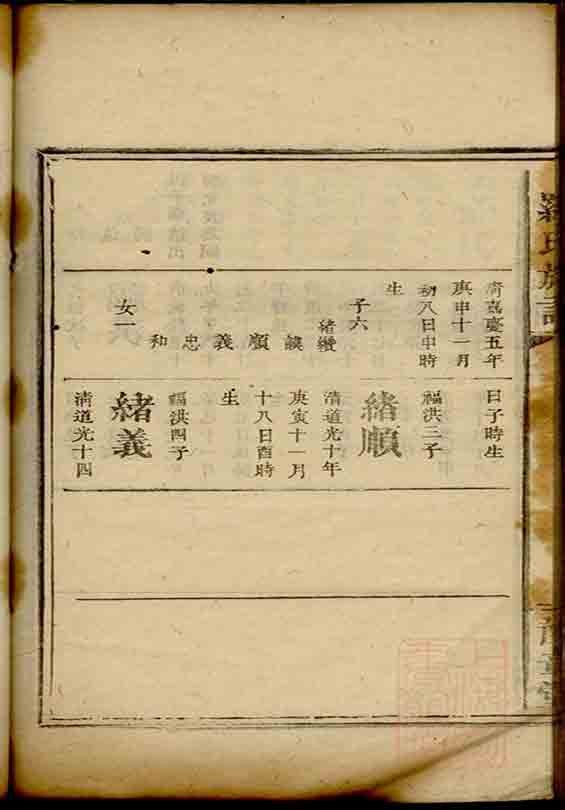 羅氏族譜
清嘉慶五年
庚申十一月
初八日申時
生
子六
緒纘
緒
順
義
忠
和
女一
日子時生
福洪三子
緒順
清道光十年
庚寅十一月
十八日酉時
生
福洪四子
緒義
清道光十四